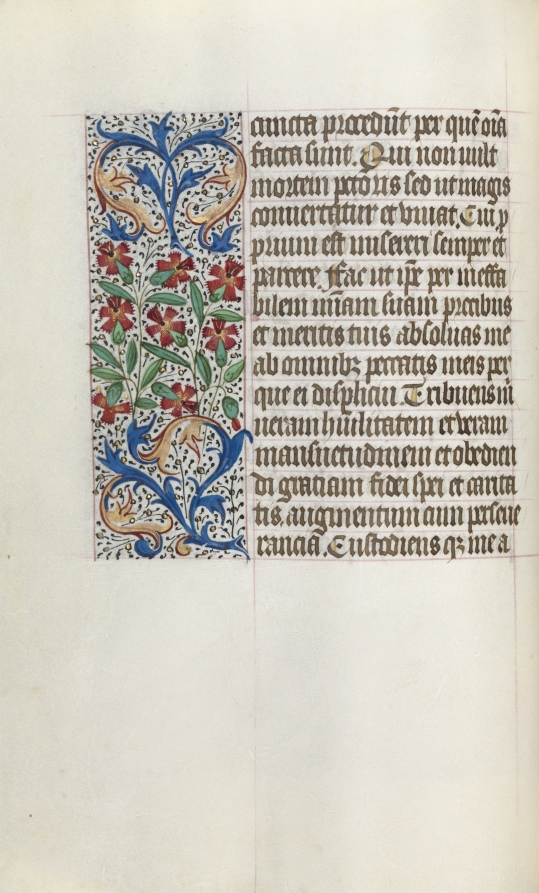 cuncta procedūt per quē oīa
facta sunt. Qui non uult
mortem pctoris sed ut magis
conuertatur et viuat. Cui p
prium est misereri semper et
parcere. Fac ut ipe per ineffa
bilem mīam suam precibus
et meritis tuis absoluas me
ab omnibz peccatis meis per
que ei displicui Tribuens m
ueram huilitatem et veram
mansuetudinem et obedien
di gratiam fidei spei et carita
tis. augmentum cum perseue
rancia. Custodiens qz me a